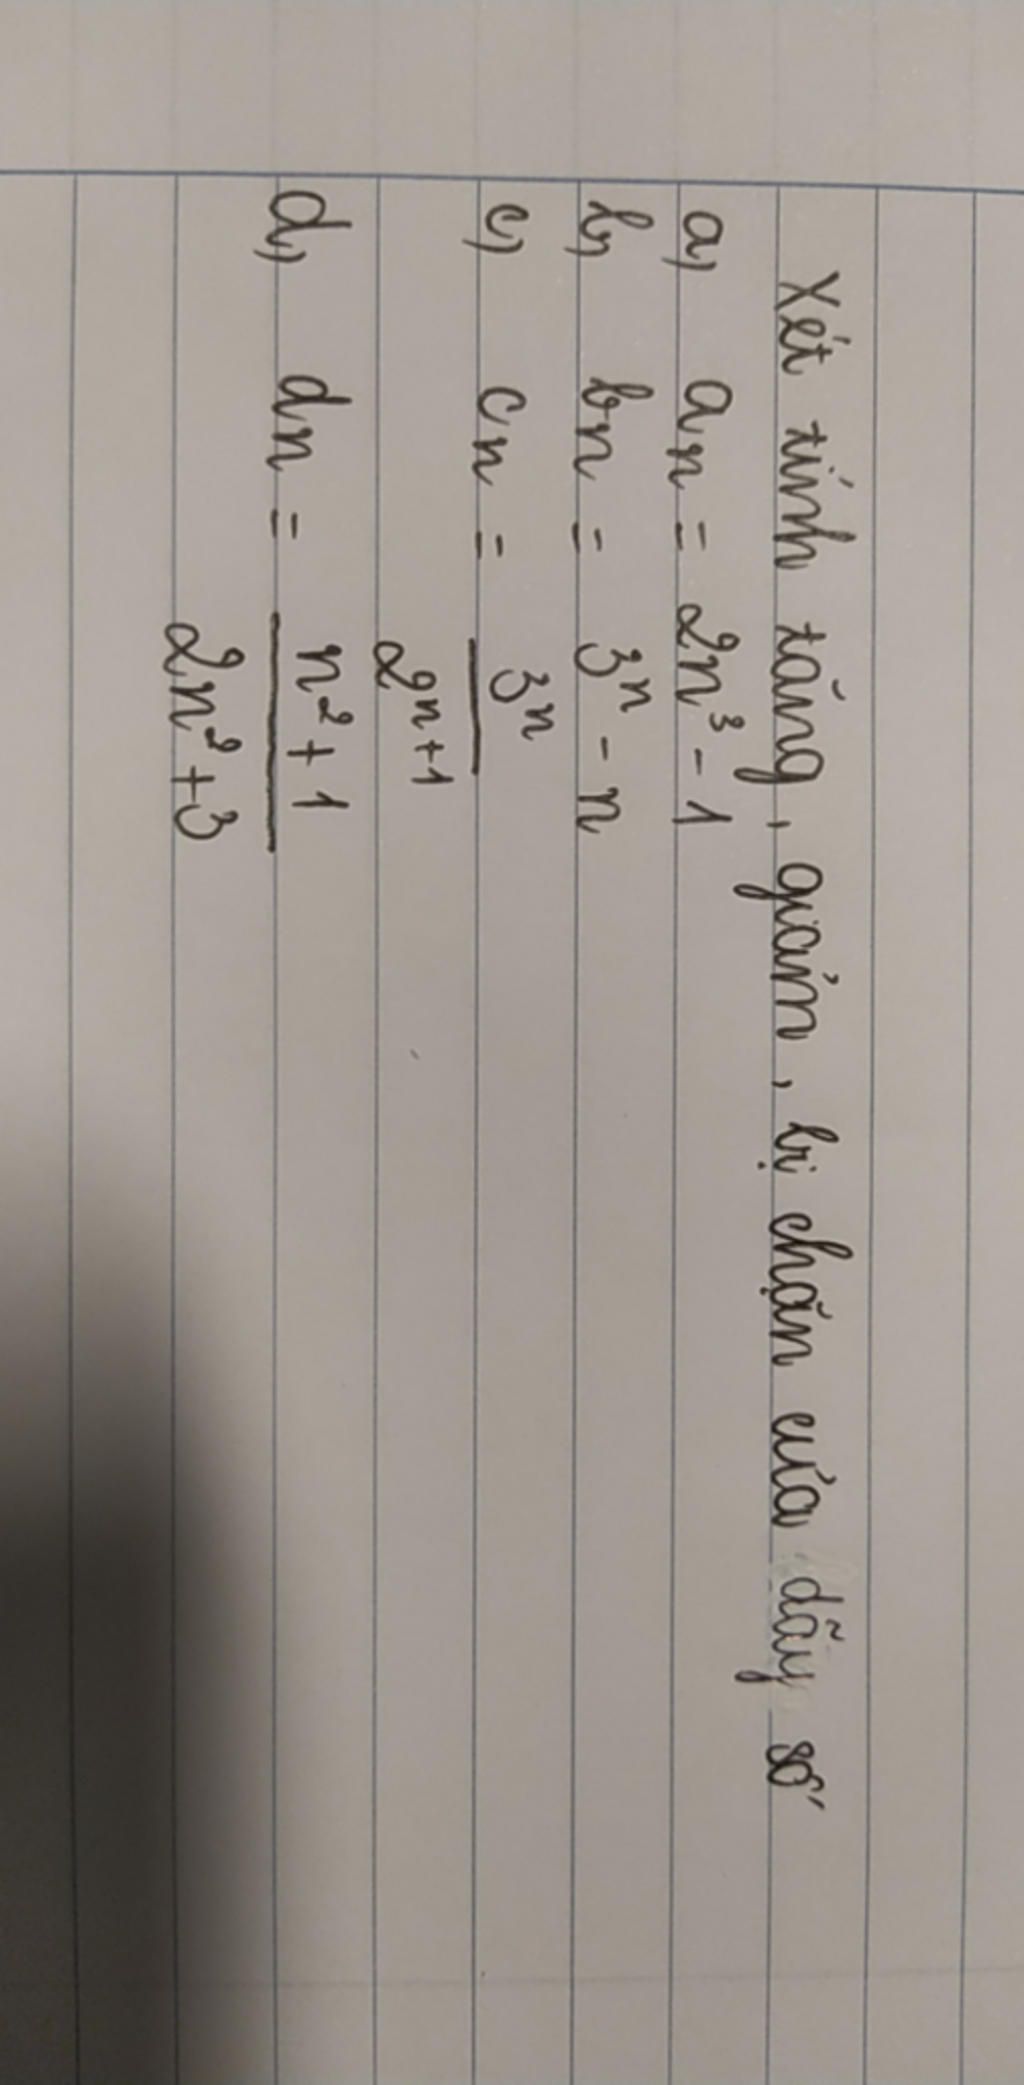 Xét tính tăng, giảm, bị chặn của dãy số
a) an = 2n³ - 1
b) bn = 3ⁿ - n
c) cn = 3ⁿ / 2ⁿ⁺¹
d) dn = n² + 1 / 2n² + 3